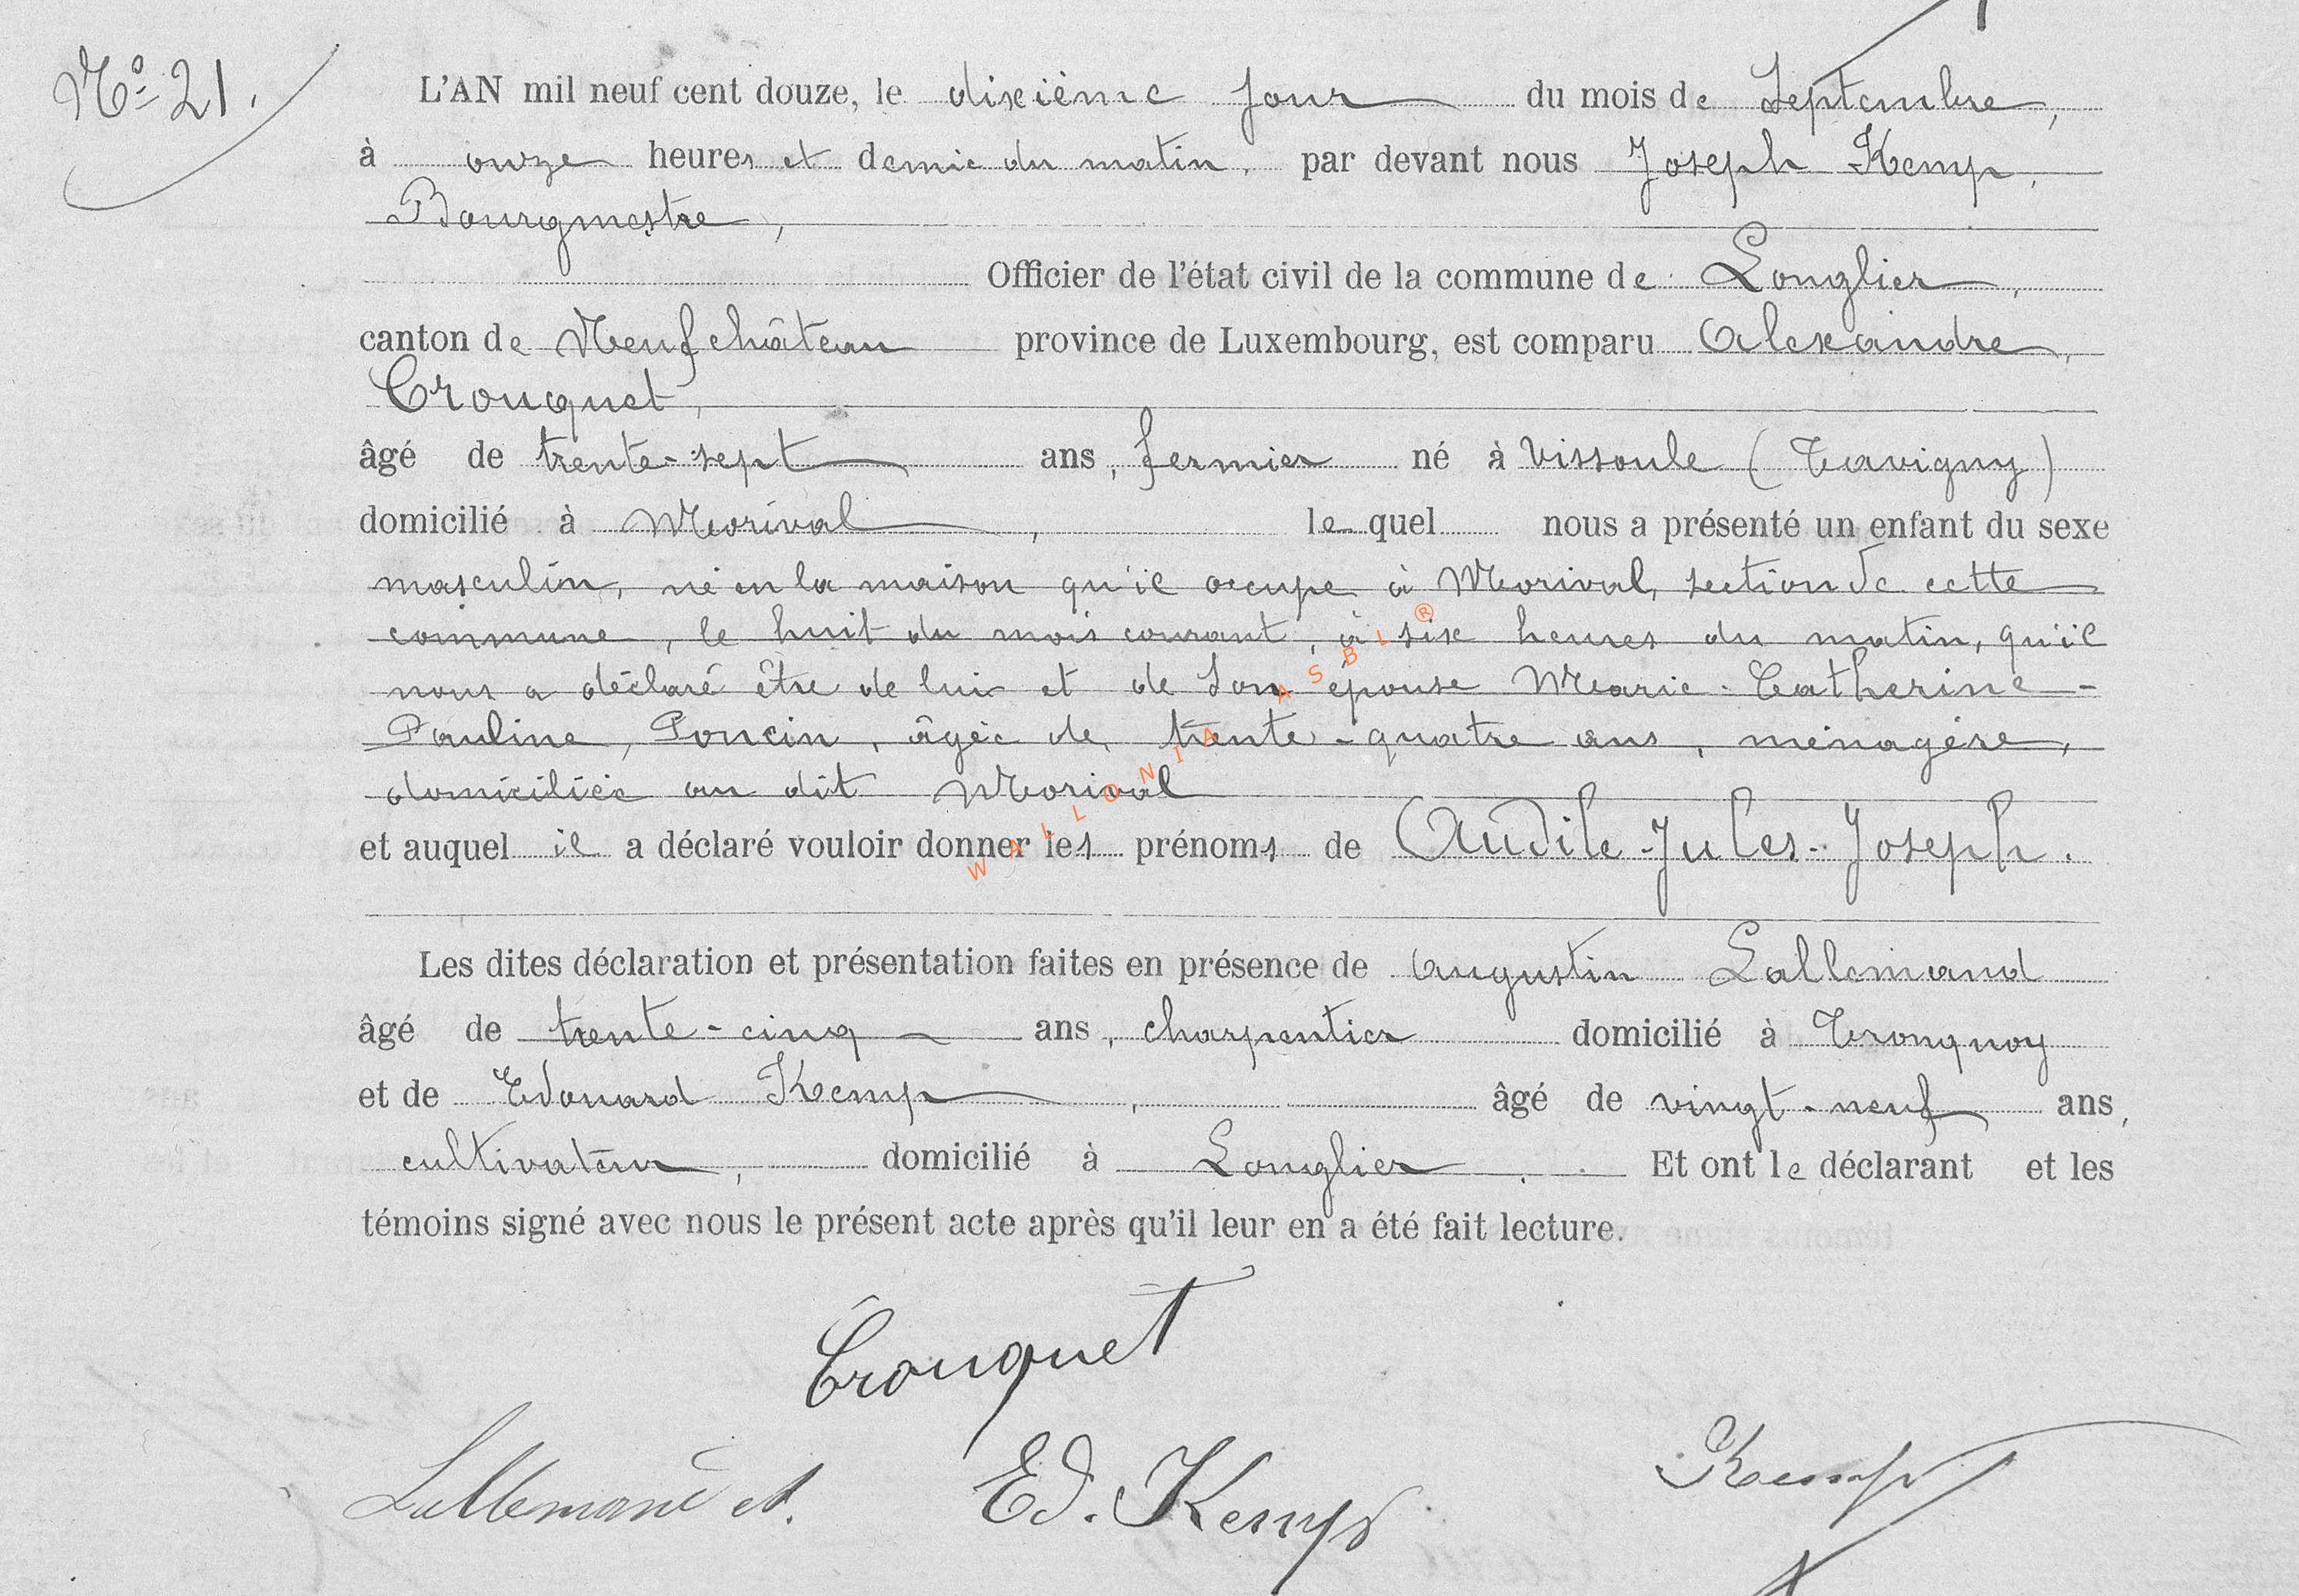 No 21.
L'AN mil neuf cent douze, le dixième jour du mois de Septembre,
à onze heures et demie du matin, par devant nous Joseph Kemp,
Bourgmestre,
Officier de l'état civil de la commune de Longlier,
canton de Neufchâteau province de Luxembourg, est comparu Alexandre,
Crouquet,
âgé de trente-sept ans, fermier né à Vissoule (Tavigny)
domicilié à Morival, lequel nous a présenté un enfant du sexe
masculin, né en la maison qu'il occupe à Morival, section de cette
commune, le huit du mois courant, à six heures du matin, qu'il
nous a déclaré être de lui et de son épouse Marie-Catherine-
Pauline, Poncin, âgée de trente-quatre ans, ménagère,
domiciliée au dit Morival
et auquel il a déclaré vouloir donner les prénoms de Audile-Jules-Joseph.
Les dites déclaration et présentation faites en présence de Augustin Lallemand
âgé de trente-cinq ans, charpentier domicilié à Tronquoy
et de Edouard Kemp, âgé de vingt-neuf ans,
cultivateur, domicilié à Longlier. Et ont le déclarant et les
témoins signé avec nous le présent acte après qu'il leur en a été fait lecture.
Crouquet
Lallemand A. Ed. Kemp Kemp
WALLONIA ASBL ®